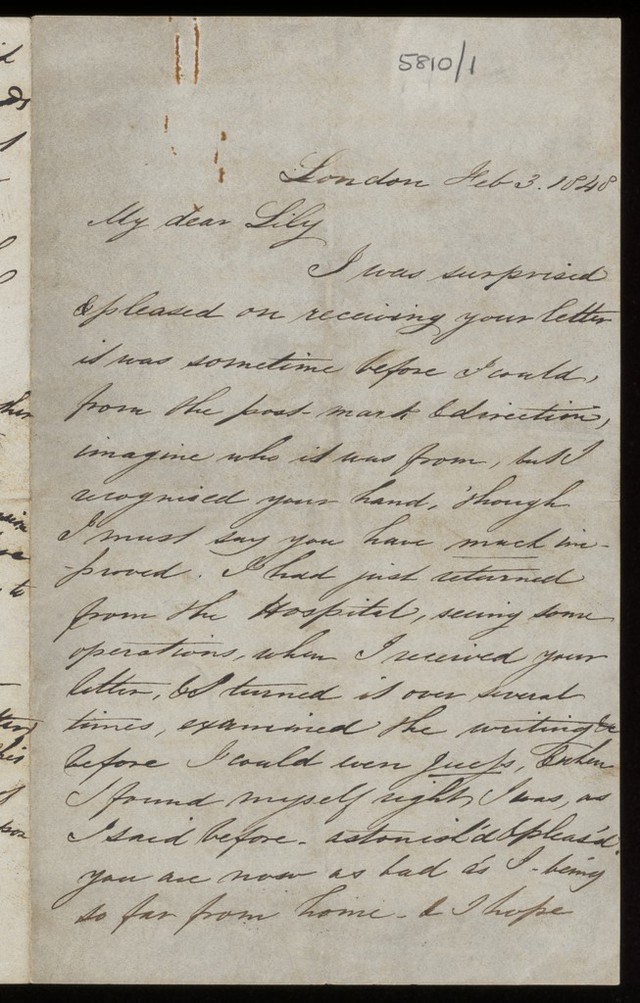 5810/1
London Feb 3. 1848
My dear Lily
I was surprised
& pleased on receiving your letter
it was sometime before I could,
from the post mark & direction,
imagine who it was from, but I
recognised your hand, though
I must say you have much im-
-proved. I had just returned
from the Hospital, seeing some
operations, when I received your
letter, & I turned it over several
times, examined the writing &c
before I could even guess, & when
I found myself right, I was, as
I said before - astonish'd & pleas'd.
you are now as bad as I - being
so far from home - & I hope